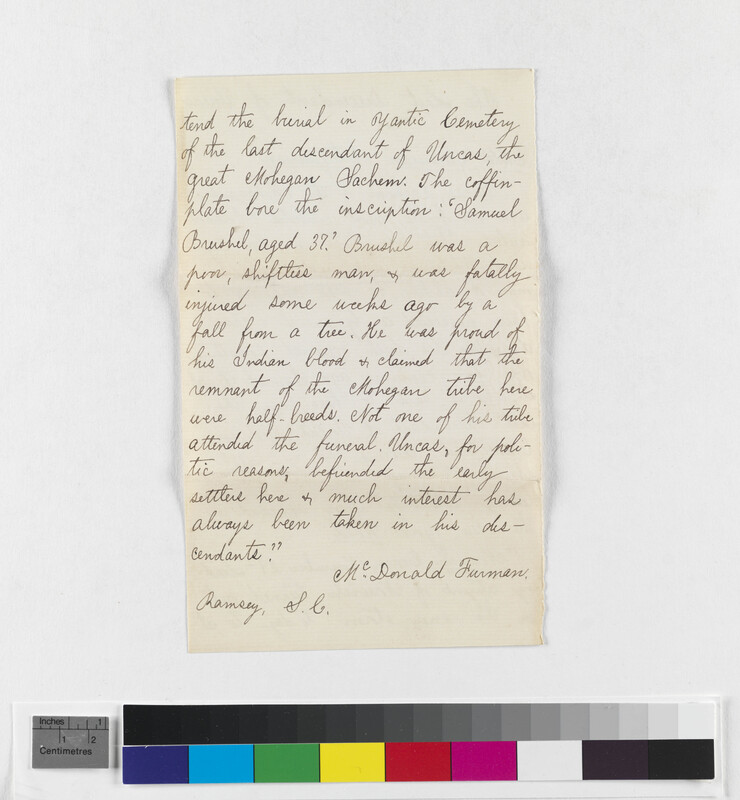 tend the burial in Yantic Cemetery
of the last descendant of Uncas, the
great Mohegan Sachem. The coffin-
plate bore the inscription: 'Samuel
Brushel, aged 37.' Brushel was a
poor, shiftless man, & was fatally
injured some weeks ago by a
fall from a tree. He was proud of
his Indian blood & claimed that the
remnant of the Mohegan tribe here
were half-breeds. Not one of his tribe
attended the funeral. Uncas, for poli-
tic reasons, befriended the early
settlers here & much interest has
always been taken in his des-
cendants."
Mc. Donald Furman.
Ramsey, S.C.
Inches 1
1 2
Centimetres